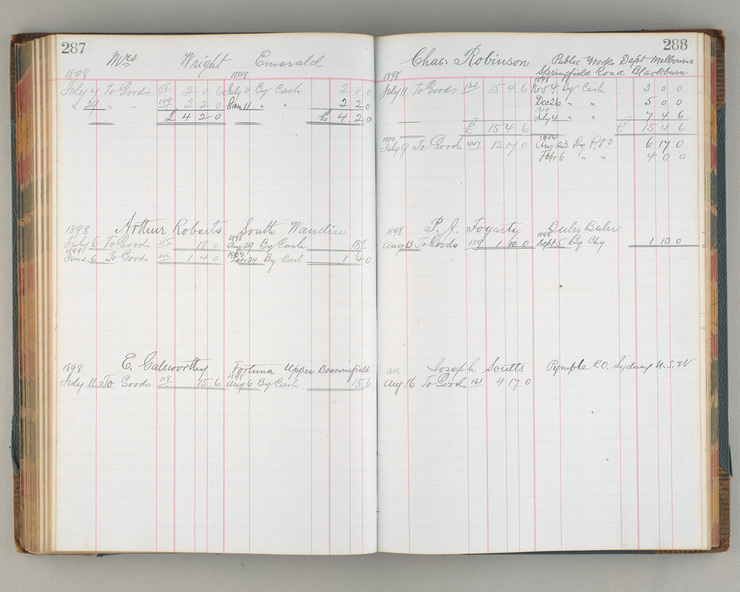 287
Mrs Wright Emerald
1898 1898
July 4 To Goods 2 0 6 July 11 By Cash 2 0 0
" 29 " " 2 2 0 " " 2 2 0
£ 4 2 0 £ 4 2 0
Arthur Roberts South Wandin
1898 1898
July 6 To Good 115 18 0 Aug 29 By Cash 18/
June 6 To Goods 1 4 0 24 By Cash 1 4 0
E. Galsworthy Fortuna Upper Bloomfield
1898
July 11 To Goods 118 15 6 Aug 6 By Cash 15 6
288
Chas. Robinson Public Works Dept Melbourne
Springfield Road Blackburn
1898 1898
July 11 To Goods 124 15 4 6 Nov 4 By Cash 3 0 0
Dec 26 " " 5 0 0
July 4 " " 7 4 6
£ 15 4 6 £ 15 4 6
1900
July 9 To Good 447 Aug 23 By P.O 6 17 0
Feb 6 " " 4 0 0
P. J. Fogarty Dulu Dulu
1898 1898
Aug 13 To Goods 159 1 10 0 Sept 5 By Chq 1 10 0
Joseph Soutts Pymple P.O. Sydney N.S.W
1898
Aug 16 To Good 161 4 17 0